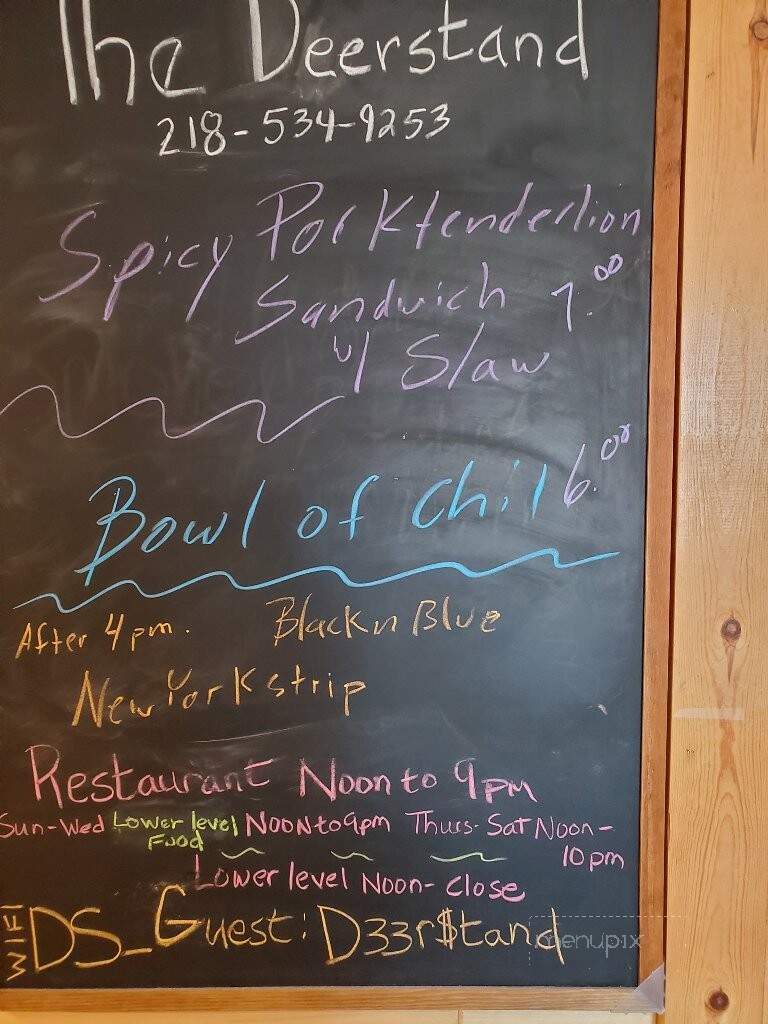 The Deerstand
218-534-9253
Spicy Porktenderlion
Sandwich 7.00
w/ Slaw
Bowl of Chili 6.00
After 4pm. Black n Blue
New York strip
Restaurant Noon to 9pm
Sun-Wed Lower level Noon to 9pm Thurs-Sat Noon-
Food
10pm
Lower level Noon-Close
WIFI DS_Guest: D33r$tand
menupix